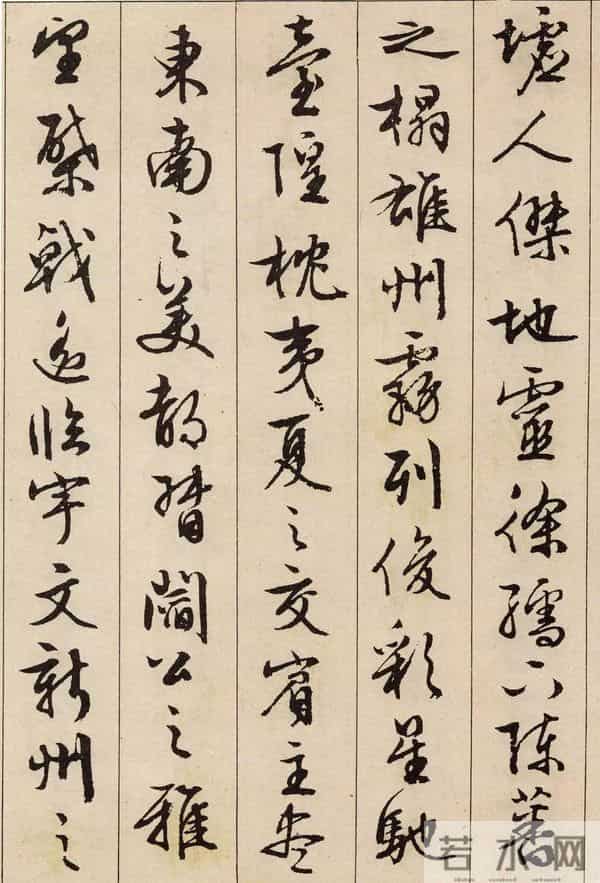 墟人傑地靈徐孺下陳蕃
之榻雄州霧列俊彩星馳
臺隍枕夷夏之交賓主盡
東南之美都督閻公之雅
望棨戟遙臨宇文新州之
若水网